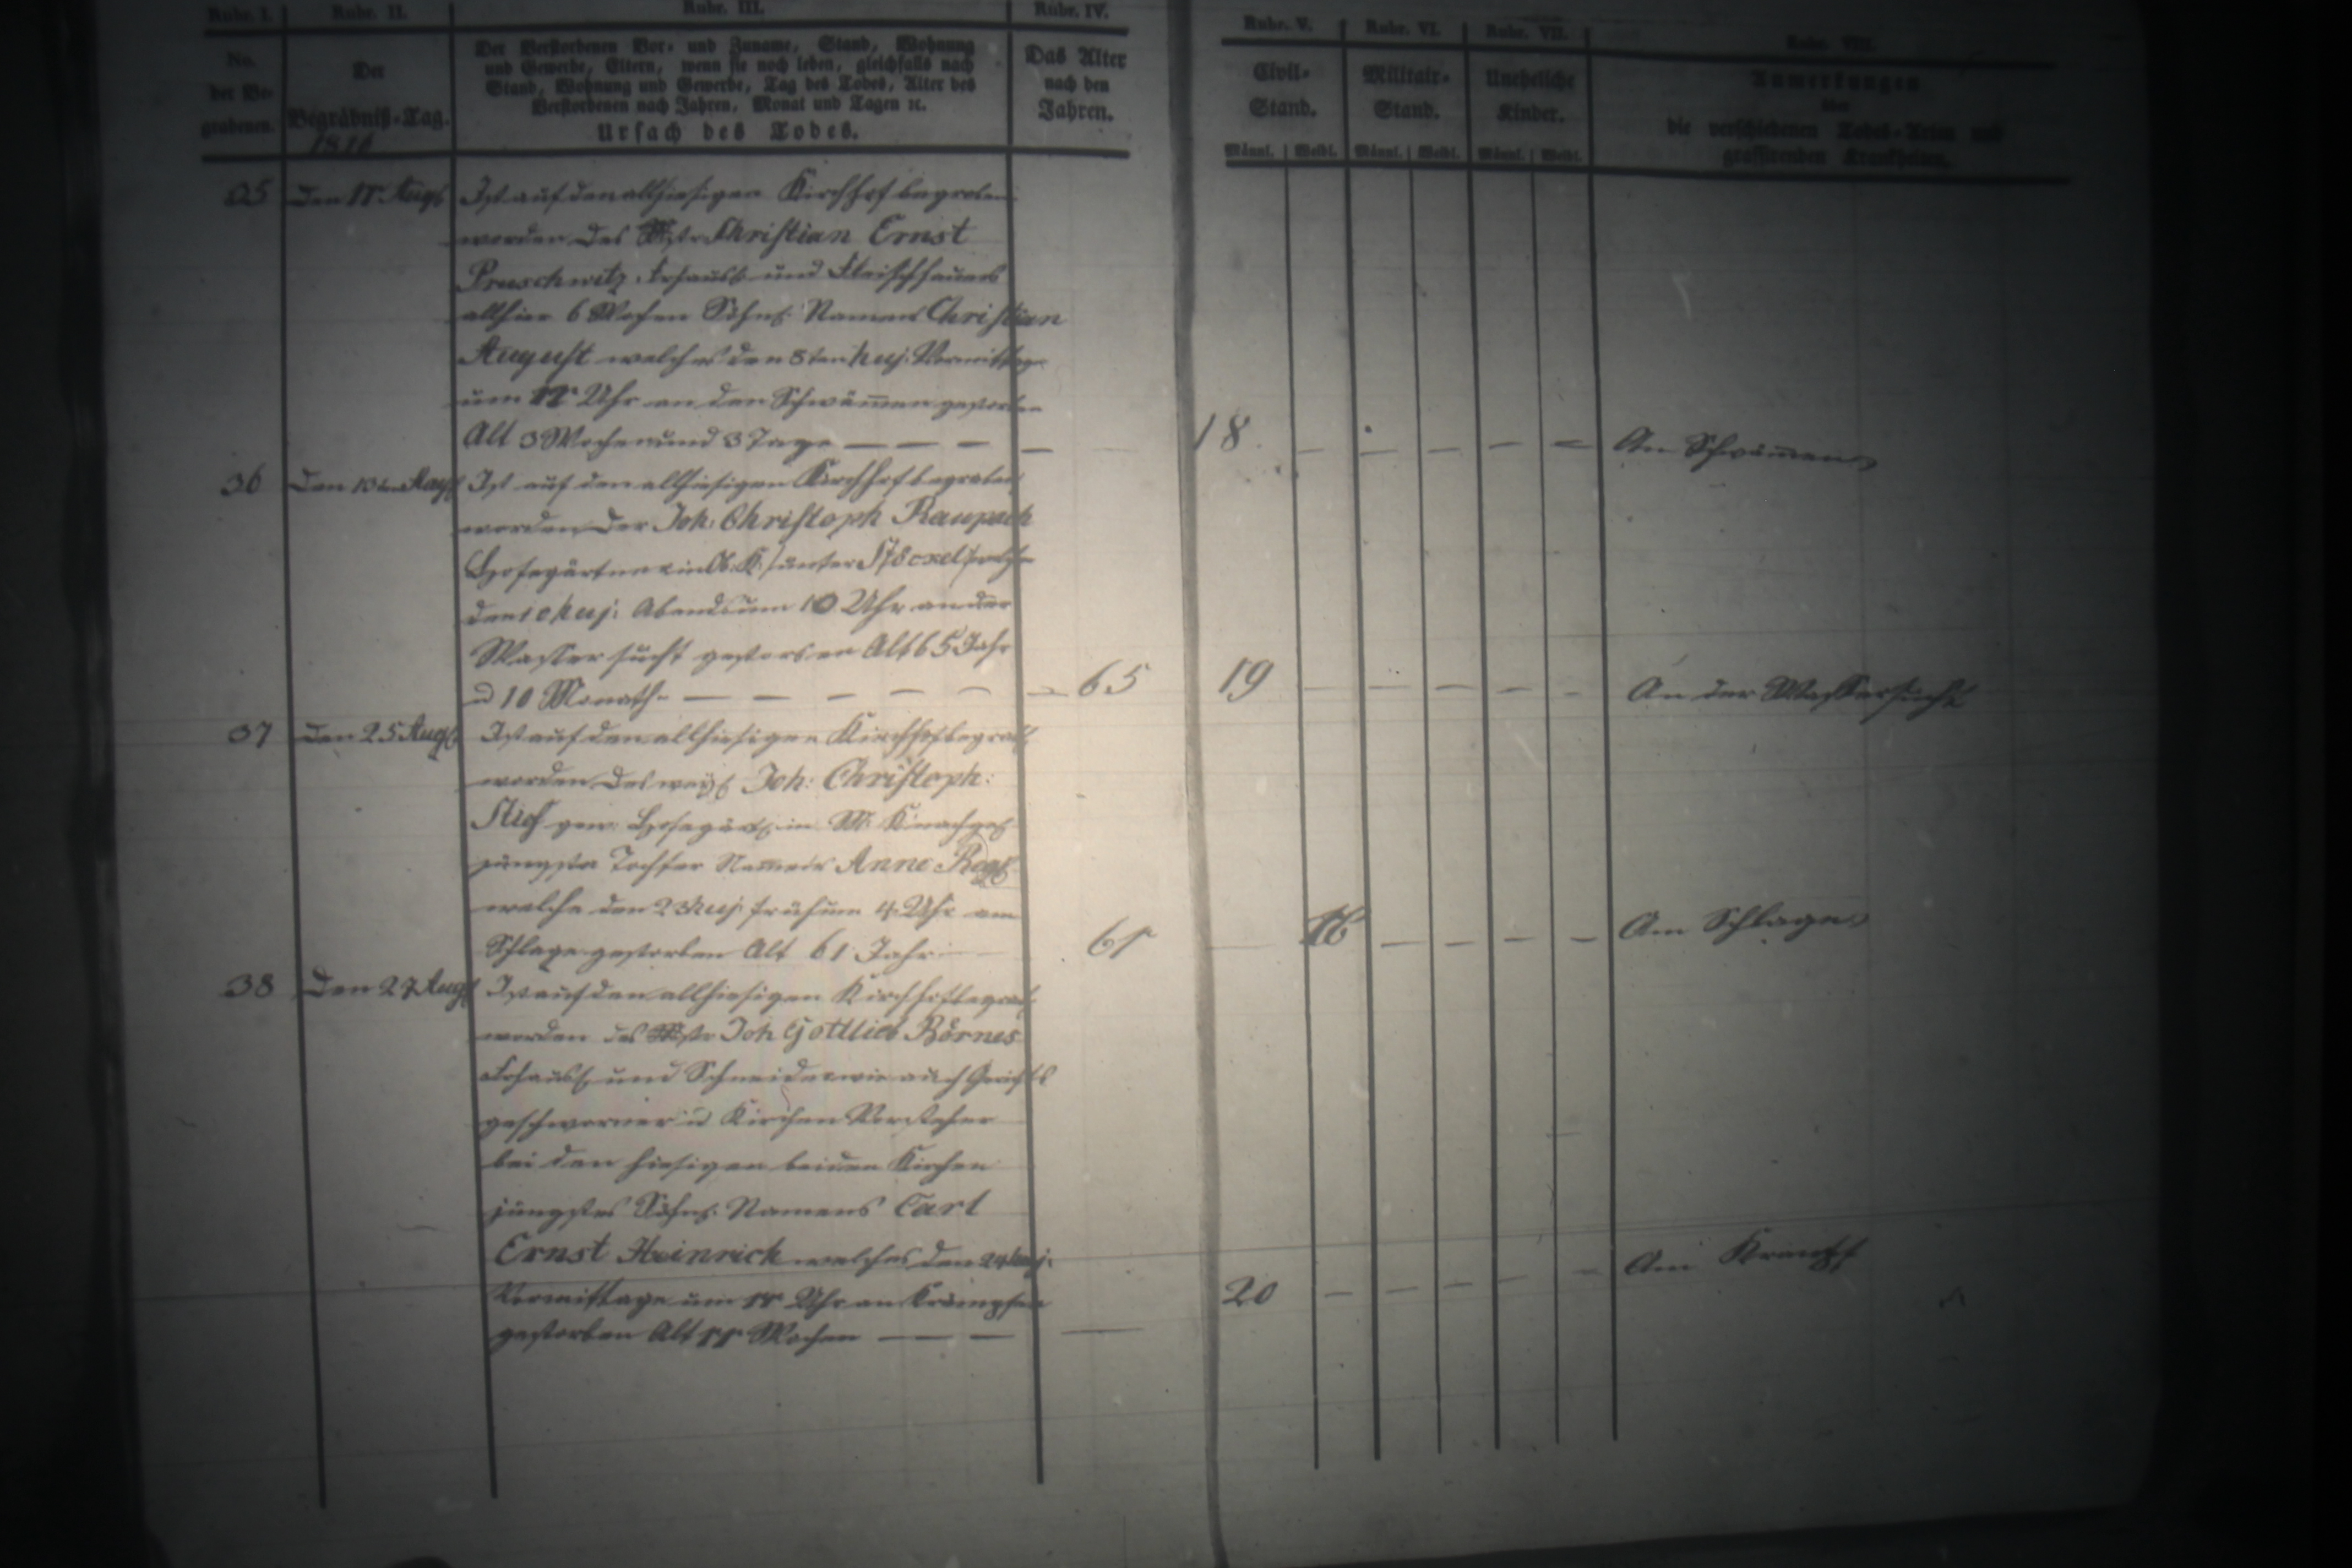 Rubr. I. Rubr. II. Rubr. III. Rubr. IV. Rubr. V. Rubr. VI. Rubr. VII. Rubr. VIII.
No. der Begrabenen.
Der Begräbniß-Tag.
Der Verstorbenen Vor- und Zuname, Stand, Wohnung
und Gewerbe, Eltern, wenn sie noch leben, gleichfalls nach
Stand, Wohnung und Gewerbe, Tag des Todes, Alter des
Verstorbenen nach Jahren, Monat und Tagen ꝛc.
Ursach des Todes.
Das Alter nach den Jahren.
Civil-Stand.
Militair-Stand.
Uneheliche Kinder.
Anmerkungen
über
die verschiedenen Todes-Arten und
grassirenden Krankheiten.
Männl. Weibl. Männl. Weibl. Männl. Weibl.
35 den 11 Aug Ist auf den allhiesigen Kirchhof begraben
worden des Mstr Christian Ernst
Pruschwitz und Fleischhauers
allhier Söhnl. Namens Christian
August welches den 8ten huj. Vormittag
um 11 Uhr an den Schwämmen gestorben
Alt 3 Wochen und 3 Tage — — — — 18 — — — — — An Schwämmen
36 Ist auf den allhiesigen Kirchhof begraben
worden der Joh: Christoph Raupach
Hofegärtner in
huj: Abends um 10 Uhr an der
Wassersucht gestorben Alt 65 Jahr
u 10 Monath — — — — — — 65 19 — — — — — An der Wassersucht
37 den 25 Aug Ist auf den allhiesigen Kirchhof begrab
worden des Joh: Christoph:
gew: Hofegärt in
jüngste Tochter Namens Anne
welche den 23 huj früh um 4 Uhr am
Schlage gestorben Alt 61 Jahr 61 — 16 — — — — Am Schlage
38 Den 27 Aug Ist auf den allhiesigen Kirchhof begrab
worden des Mstr Joh Gottlieb Börnes
und Schneider wie auch Gerichts
geschworner u Kirchen Vorsteher
bei den hiesigen beiden Kirchen
jüngstes Söhnl. Namens Carl
Ernst Heinrich welches den 24 huj:
Vormittage um 11 Uhr an Krämpfen
gestorben Alt 11 Wochen — — — 20 — — — — — Am Krampf